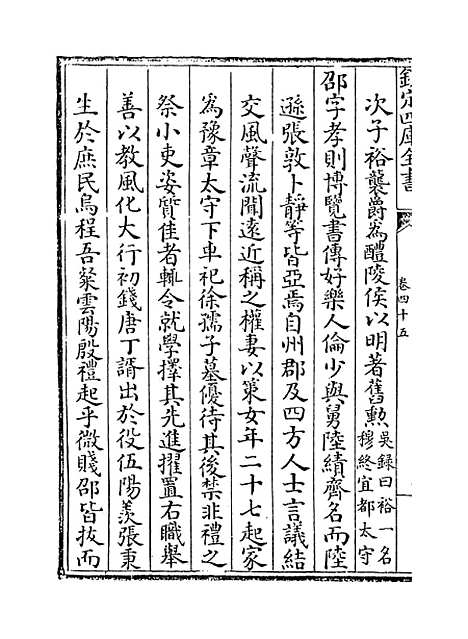 欽定四庫全書
卷四十五
次子裕襲爵為醴陵侯以明著舊勲吳録曰裕一名
穆終宜都太守
邵字孝則博覽書傳好樂人倫少與舅陸績齊名而陸
遜張敦卜靜等皆亞焉自州郡及四方人士言議結
交風聲流聞遠近稱之權妻以策女年二十七起家
為豫章太守下車祀徐孺子墓優待其後禁非禮之
祭小吏姿質佳者輒令就學擇其先進擢置右職舉
善以教風化大行初錢唐丁諝出於役伍陽羨張秉
生於庶民烏程吾粲雲陽殷禮起乎微賤邵皆拔而